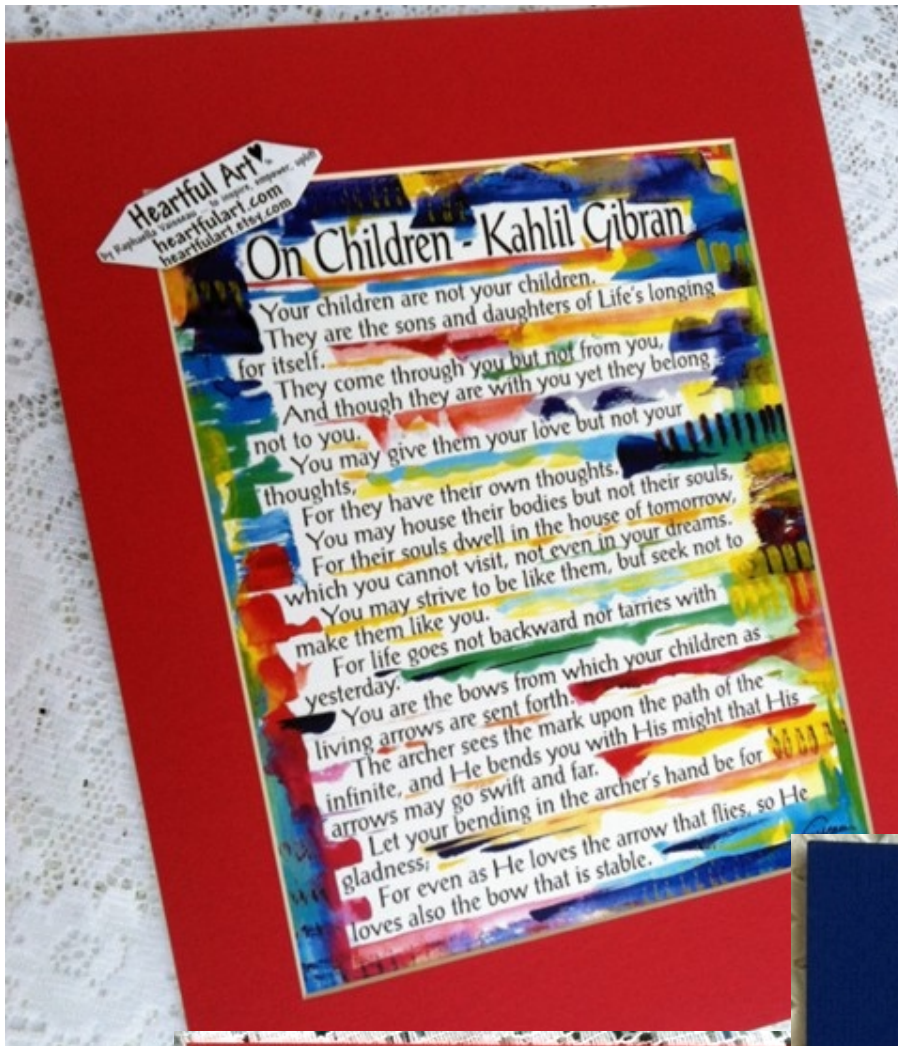 Heartful Art
by Raphaella Vaisseau - to inspire, empower, uplift
heartfulart.com
heartfulart.etsy.com
On Children - Kahlil Gibran
Your children are not your children.
They are the sons and daughters of Life's longing
for itself.
They come through you but not from you,
And though they are with you yet they belong
not to you.
You may give them your love but not your
thoughts,
For they have their own thoughts.
You may house their bodies but not their souls,
For their souls dwell in the house of tomorrow,
which you cannot visit, not even in your dreams.
You may strive to be like them, but seek not to
make them like you.
For life goes not backward nor tarries with
yesterday.
You are the bows from which your children as
living arrows are sent forth.
The archer sees the mark upon the path of the
infinite, and He bends you with His might that His
arrows may go swift and far.
Let your bending in the archer's hand be for
gladness;
For even as He loves the arrow that flies, so He
loves also the bow that is stable.